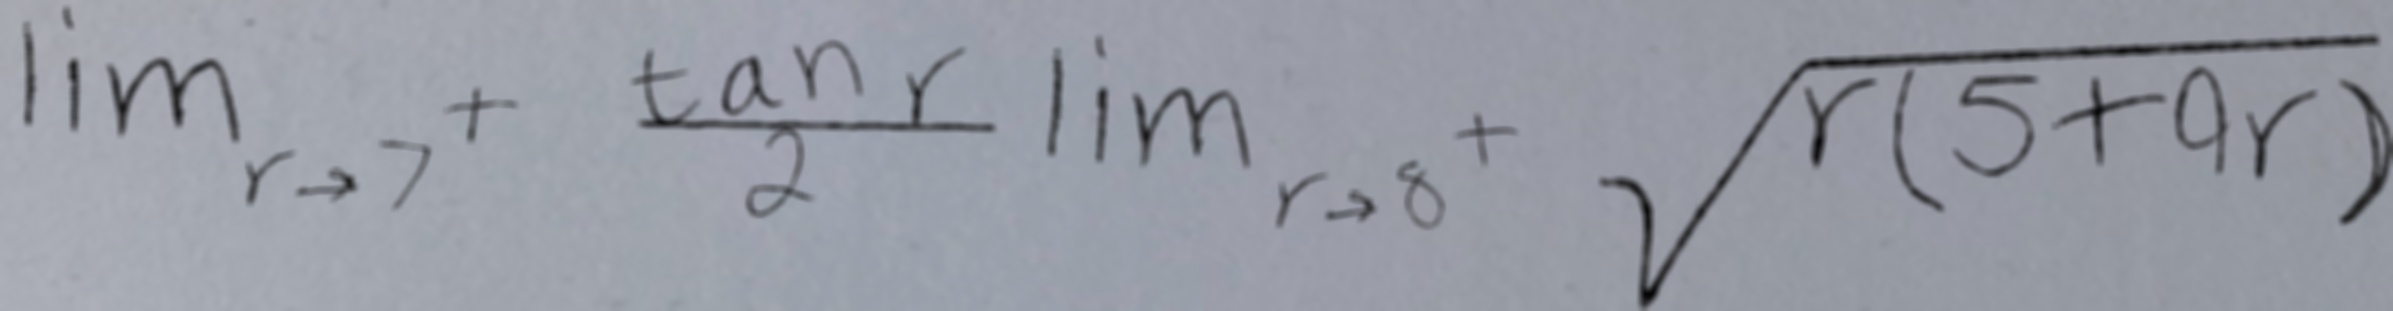 \lim_{r \to 7^+} \frac{\tan r}{2} \lim_{r \to 8^+} \sqrt{r(5+9r)}